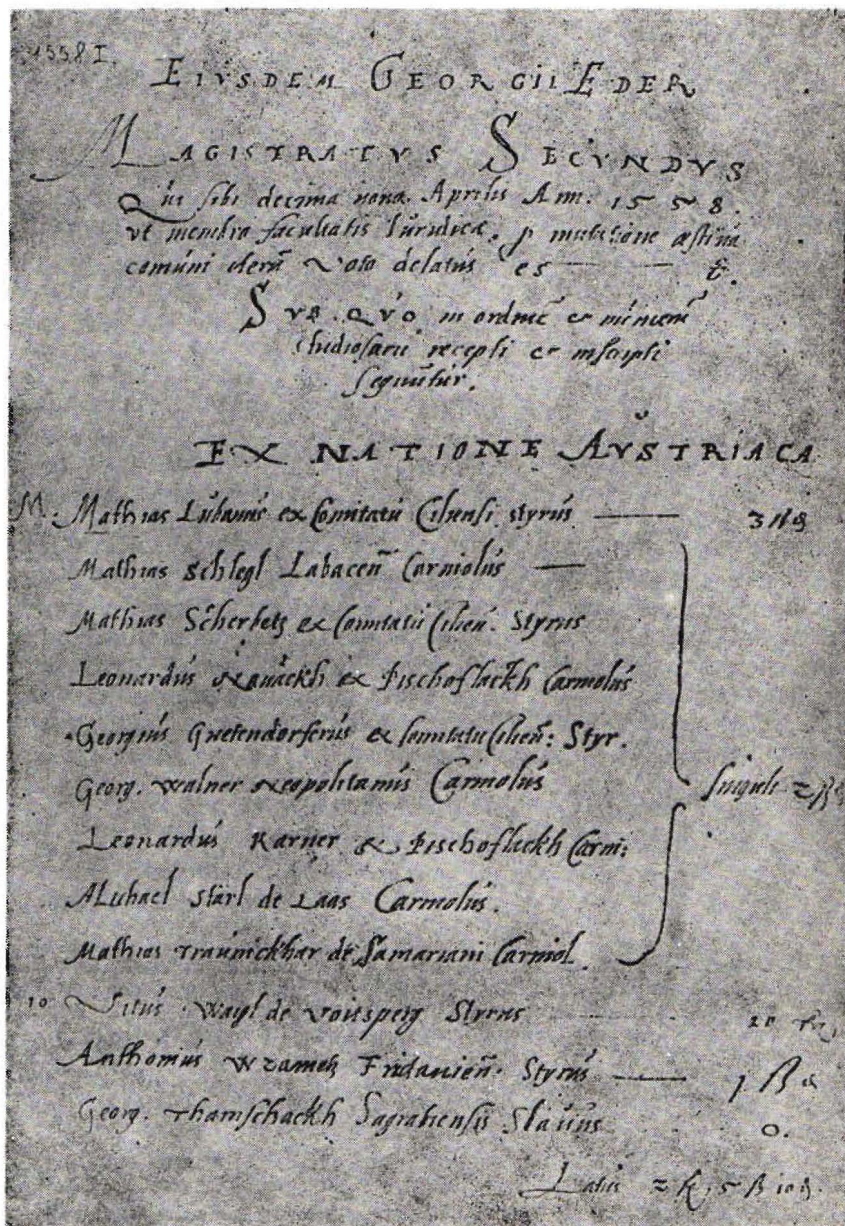 1558 I.
EIVSDEM GEORGII EDER
MAGISTRATVS SECVNDVS
Qui sibi decima nona Aprilis Ann. 1558.
vt membro facultatis Iuridicæ, p mutatione æstiva
comuni iterũ voto delatus es
SVB QVO in ordinẽ & numerũ
studiosorũ recepti & inscripti
sequũtur.
EX NATIONE AVSTRIACA
M. Mathias Lubanus ex Comitatu Ciliensi styrus 3
Mathias Schlegl Labaceñ Carniolus
Mathias Scherbetz ex Comitatu Cilieñ. Styrus
Leonardus Nauackh ex Bischoflackh Carniolus
Georgius Gretendorferus ex Comitatu Cilieñ: Styr.
Georg. Walner Neopolitanus Carniolus
Singuli 2 ß
Leonardus Karner ex Bischoflackh Carni:
Michael Starl de Laas Carniolus.
Mathias Traunickhar de Samariani Carniol.
10 Vitus Wayl de Voitsperg Styrus 20
Anthonius Wrametz Fridanieñ. Styrus 1 ß
Georg. Thamschackh Sagrabiensis Slauus 0.
Latus 2 5 ß 10